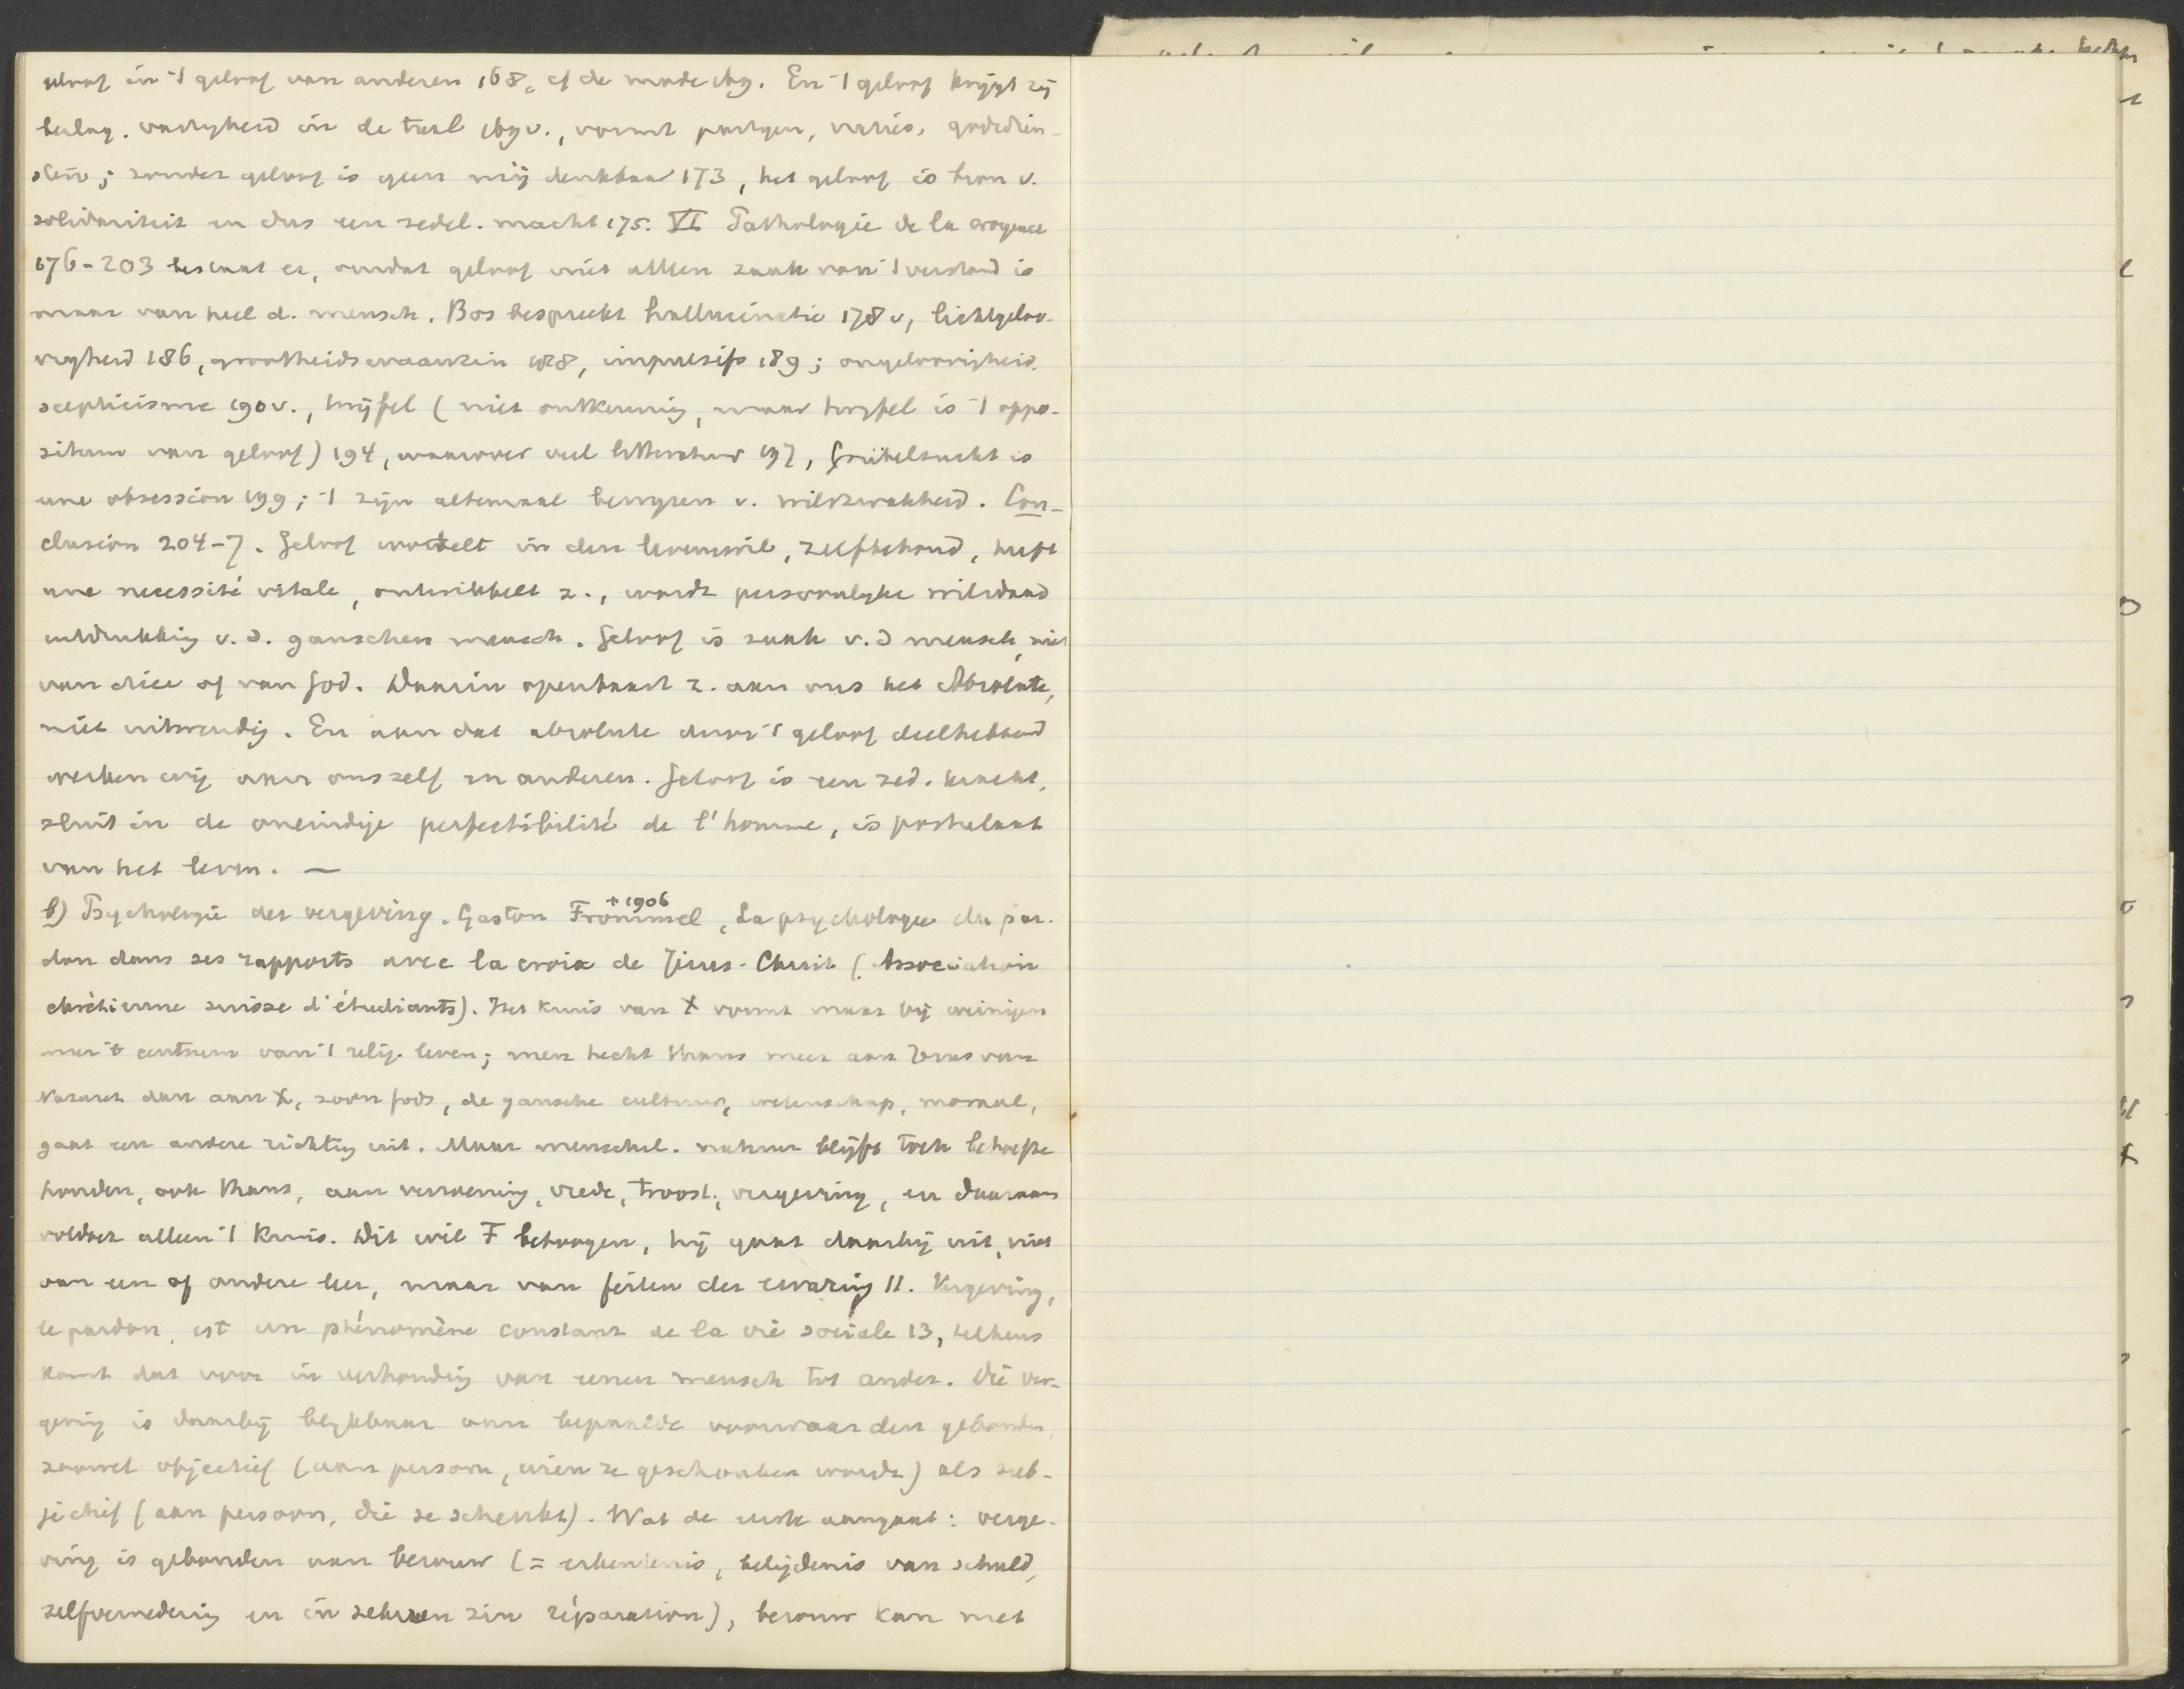 geloof in 't geloof van anderen 168, cf de mode 169. En 't geloof krijgt zij
belang. vastheid in de taal 169v., vormt partijen, natiës, godsdien-
sten; zonder geloof is geen mij denkbaar 173, het geloof is bron v.
solidariteit en dus een zedel. macht 175. VI Pathologie de la croyance
176-203 bestaat er, omdat geloof niet alleen zaak van 't verstand is
maar van heel d. mensch. Bos bespreekt hallucinatie 178v, lichtgeloo-
vigheid 186, grootheidswaanzin 188, impulsifs 189; ongeloovigheid,
scepticisme 190v., twijfel (niet ontkenning, maar twijfel is 't oppo-
situm van geloof) 194, waarover veel litteratuur 197, Grübelsucht is
une obsession 199; 't zijn altemaal bewijzen v. wilszwakheid. Con-
clusion 204-7. Geloof wortelt in den levenswil, zelfbehoud, heeft
une necessité vitale, ontwikkelt z., wordt persoonlijke wilsdaad
uitdrukking v.d. ganschen mensch. Geloof is zaak v.d mensch, niet
van dier of van God. Daarin openbaart z. aan ons het Absolute,
niet uitwendig. En aan dat absolute door 't geloof deelhebbend
werken wij aan onszelf en anderen. Geloof is een zed. kracht,
sluit in de oneindige perfectibilité de l'homme, is postulaat
van het leven. —
b) Psychologie der vergeving. Gaston Frommel +1906, La psychologie du par-
don dans ses rapports avec la croix de Jésus-Christ (Association
chrétienne suisse d'étudiants). Het kruis van X vormt maar bij weinigen
meer 't centrum van 't relig. leven; men hecht thans meer aan Jezus van
Nazaret dan aan X, zoon Gods, de gansche cultuur, wetenschap, moraal,
gaat een andere richting uit. Maar menschel. natuur blijft toch behoefte
houden, ook thans, aan verzoening, vrede, troost, vergeving, en daaraan
voldoet alleen 't Kruis. Dit wil F betoogen, hij gaat daarbij uit, niet
van een of andere leer, maar van feiten der ervaring 11. Vergeving,
le pardon, est un phénomène constant de la vie sociale 13, telkens
komt dat voor in verhouding van eenen mensch tot ander. Die ver-
geving is daarbij blijkbaar aan bepaalde voorwaarden gebonden,
zoowel objectief (aan persoon, wien ze geschonken wordt) als sub-
jectief (aan persoon, die ze schenkt). Wat de eerste aangaat: verge-
ving is gebonden aan berouw (= erkentenis, belijdenis van schuld,
zelfvernedering en in zekeren zin réparation), berouw kan met